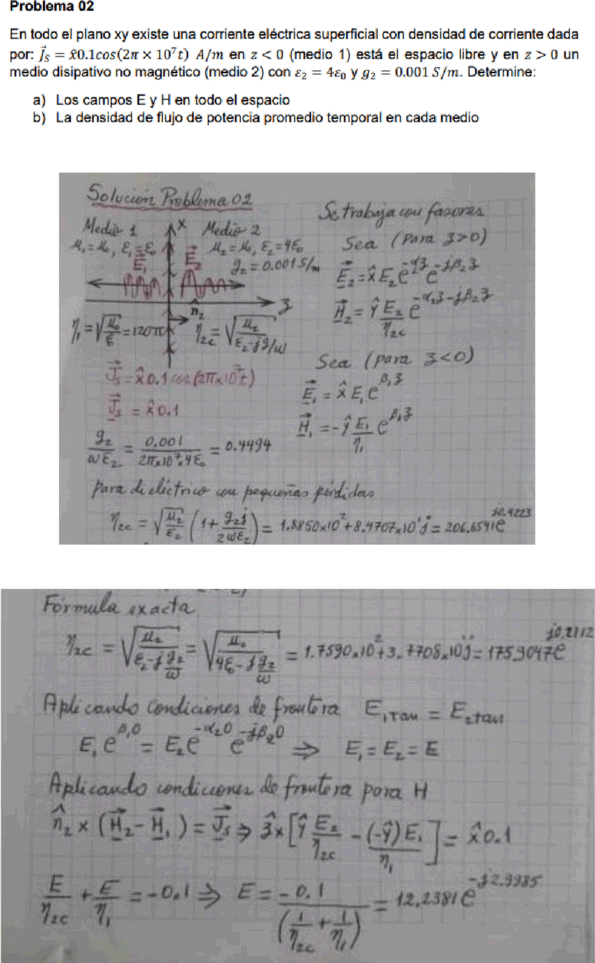 Problema 02
En todo el plano xy existe una corriente eléctrica superficial con densidad de corriente dada
por: J⃗_S = x̂0.1cos(2π × 10⁷t) A/m en z < 0 (medio 1) está el espacio libre y en z > 0 un
medio disipativo no magnético (medio 2) con ε₂ = 4ε₀ y g₂ = 0.001 S/m. Determine:
a) Los campos E y H en todo el espacio
b) La densidad de flujo de potencia promedio temporal en cada medio
Solución Problema 02
Medio 1
x
Medio 2
μ₁ = μ₀, ε₁ = ε₀
μ₂ = μ₀, ε₂ = 4ε₀
g₂ = 0.001 S/m
E⃗₁
E⃗₂
z
n̂₂
η₁ = √(μ₀/ε₀) = 120π
η₂c = √(μ₂/(ε₂ - j g/ω))
J⃗s = x̂ 0.1 cos(2π×10⁷t)
J⃗s = x̂ 0.1
g₂/(ωε₂) = 0.001/(2π×10⁷·4ε₀) = 0.4494
Se trabaja con fasores
Sea (para z>0)
E⃗₂ = x̂ E₂ e^(-α₂z) e^(-jβ₂z)
H⃗₂ = ŷ (E₂/η₂c) e^(-α₂z-jβ₂z)
Sea (para z<0)
E⃗₁ = x̂ E₁ e^(β₁z)
H⃗₁ = -ŷ (E₁/η₁) e^(β₁z)
para dieléctrico con pequeñas pérdidas
η₂c = √(μ₂/ε₂) (1 + g₂j/(2ωε₂)) = 1.8850×10² + 8.4707×10¹j = 206.6541 e^(j0.4223)
Fórmula exacta
η₂c = √(μ₂/(ε₂ - j g₂/ω)) = √(μ₀/(4ε₀ - j g₂/ω)) = 1.7590×10² + 3.7708×10¹j = 179.9047 e^(j0.2112)
Aplicando condiciones de frontera E₁tan = E₂tan
E₁ e^(β₁0) = E₂ e^(-α₂0) e^(-jβ₂0) ⇒ E₁ = E₂ = E
Aplicando condiciones de frontera para H
n̂₂ × (H⃗₂ - H⃗₁) = J⃗s ⇒ ẑ × [ŷ E₂/η₂c - (-ŷ) E₁/η₁] = x̂ 0.1
E/η₂c + E/η₁ = -0.1 ⇒ E = -0.1/(1/η₂c + 1/η₁) = 12.2381 e^(-j2.9985)